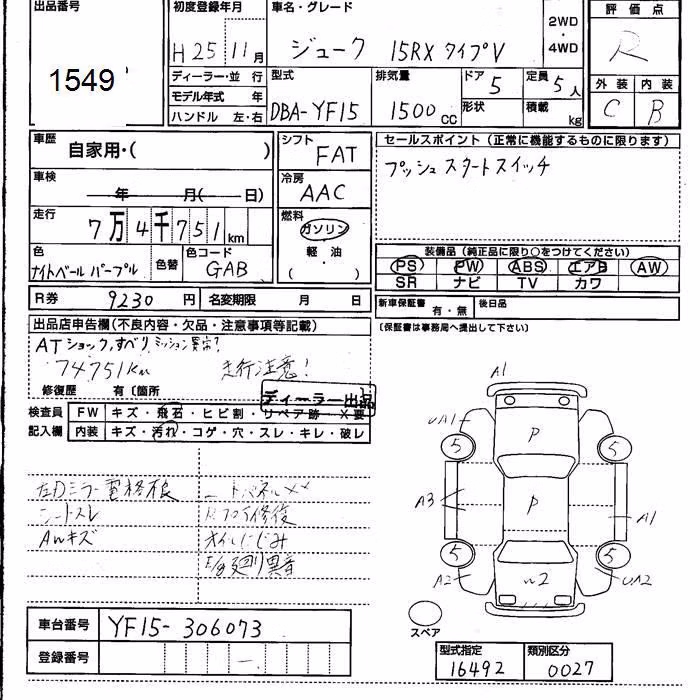 出品番号
1549
初度登録年月
H 25 年 11 月
車名・グレード
ジューク 15RX タイプV
2WD
・
4WD
評価点
R
外装 内装
C B
ディーラー・並 行
モデル年式 年
ハンドル 左・右
型式
DBA-YF15
排気量
1500 cc
ドア 5
形状
定員 5人
積載 kg
車歴
自家用・( )
車検
年 月( 日)
走行
7万4千751 km
色
ナイトベールパープル
色替
色コード
GAB
シフト
FAT
冷房
AAC
燃料
ガソリン
軽油
( ・ )
セールスポイント (正常に機能するものに限ります)
プッシュスタートスイッチ
装備品 (純正品に限り○をつけてください)
PS PW ABS エアB AW
SR ナビ TV カワ
R券 9230 円
名変期限 月 日
新車保証書
有・無
後日品
(保証書は事務局へ提出して下さい)
出品店申告欄(不良内容・欠品・注意事項等記載)
ATショック,すべり,ミッション異常?
74751Km 走行注意!
修復歴 有〔箇所
ディーラー出品
検査員
記入欄
FW キズ・飛石・ヒビ割・リペア跡・X要
内装 キズ・汚れ・コゲ・穴・スレ・キレ・破レ
左Dミラー電格不良
シートスレ
AWキズ
オイルにじみ
E/g廻り異音
車台番号 YF15-306073
登録番号 -
A1
UA1
5
5
P
A3
P
A1
5
5
A2
W2
UA2
スペア
型式指定 類別区分
16492 0027